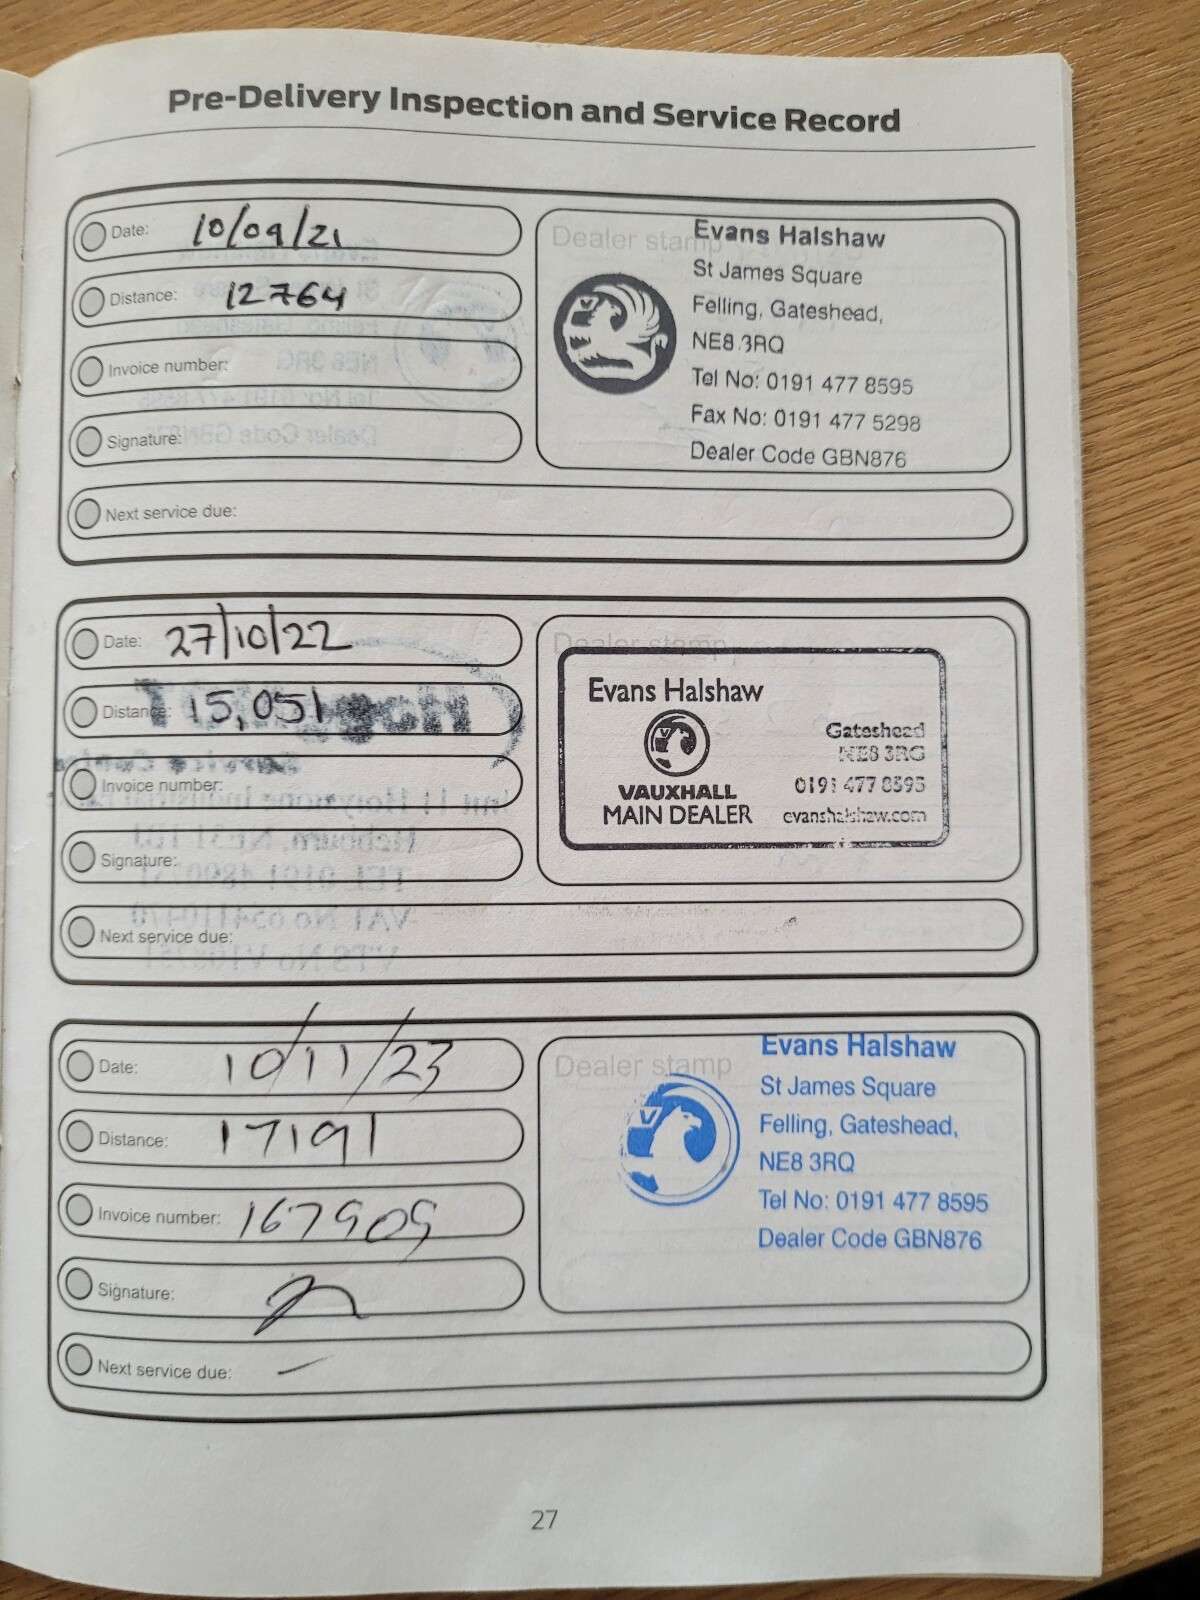 Pre-Delivery Inspection and Service Record
Date: 10/09/21
Distance: 12764
Invoice number:
Signature:
Next service due:
Dealer stamp
Evans Halshaw
St James Square
Felling, Gateshead,
NE8 3RQ
Tel No: 0191 477 8595
Fax No: 0191 477 5298
Dealer Code GBN876
Date: 27/10/22
Distance: 15,051
Invoice number:
Signature:
Next service due:
Dealer stamp
Evans Halshaw
VAUXHALL
MAIN DEALER
Gateshead
NE8 3RG
0191 477 8595
evanshalshaw.com
Date: 10/11/23
Distance: 17191
Invoice number: 167909
Signature:
Next service due: -
Dealer stamp
Evans Halshaw
St James Square
Felling, Gateshead,
NE8 3RQ
Tel No: 0191 477 8595
Dealer Code GBN876
27